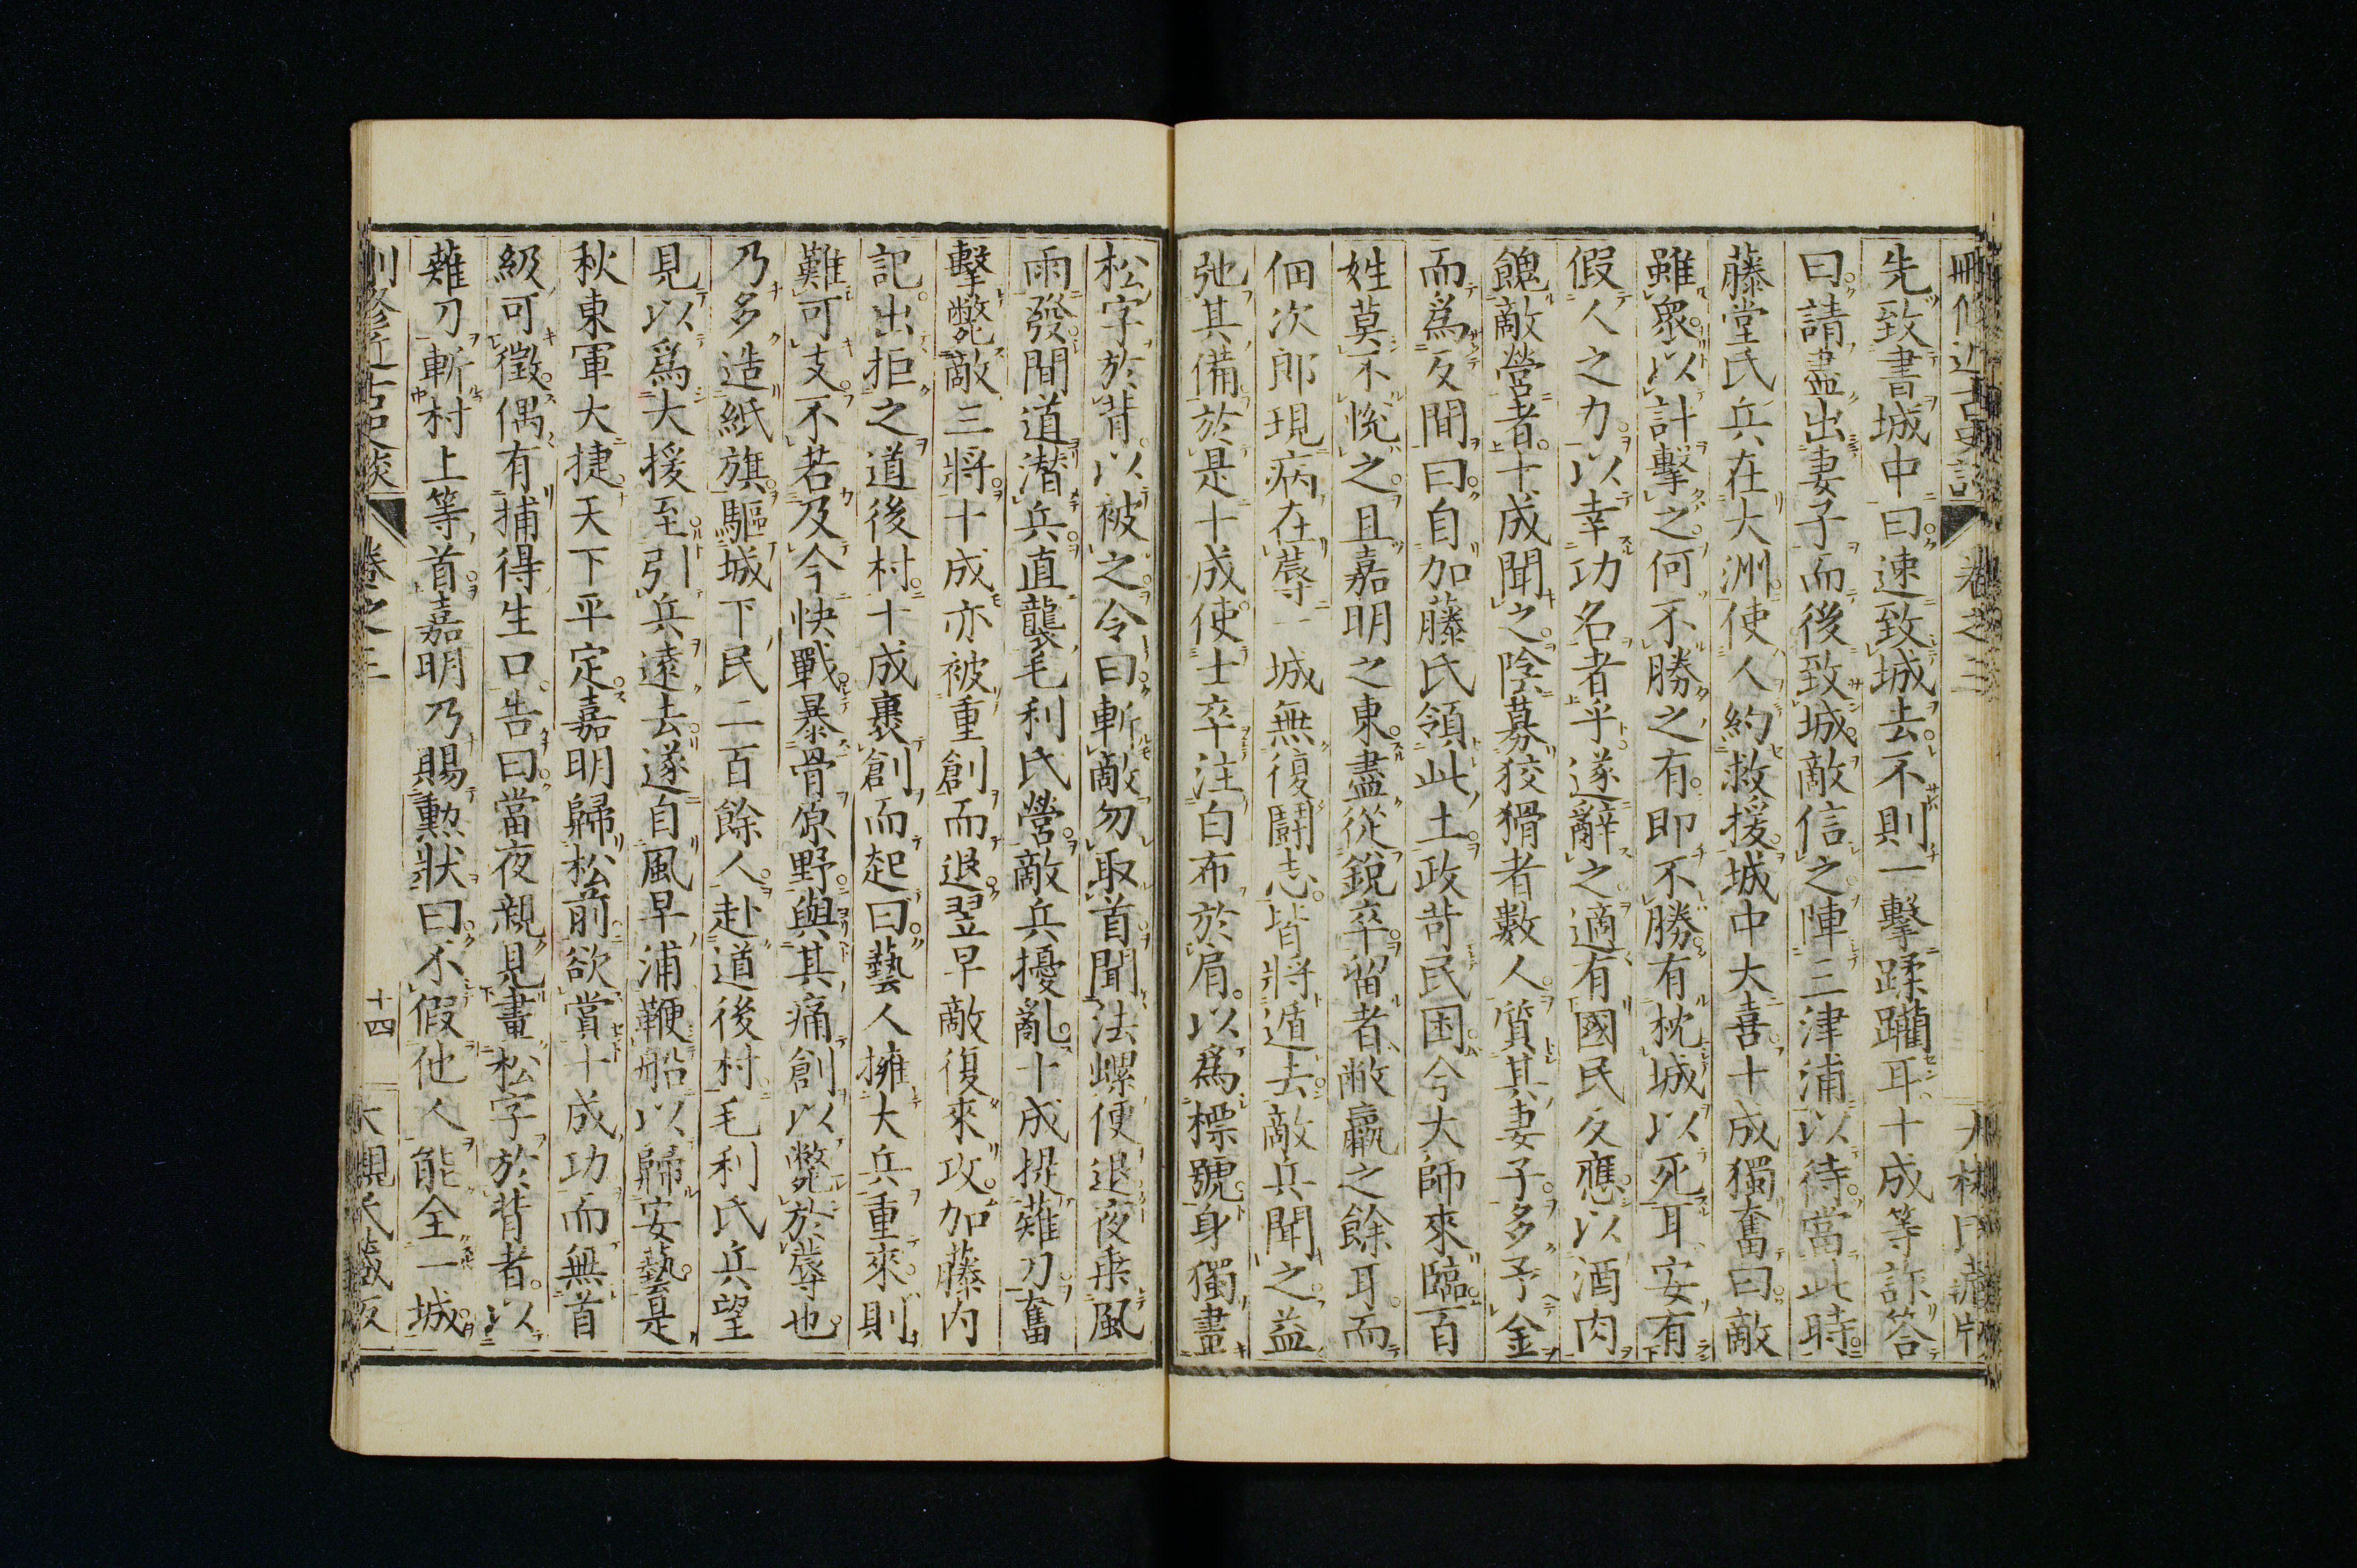 刪修近古史談 卷之三
先致書城中曰速致城去不則一擊蹂躪耳十成等詐答
曰請盡出妻子而後致城敵信之陣三津浦以待當此時
藤堂氏兵在大洲使人約救援城中大喜十成獨奮曰敵
雖衆以計擊之何不勝之有即不勝有枕城以死耳安有
假人之力以幸功名者乎遂辭之適有國民反應以酒肉
餽敵營者十成聞之陰募狡猾者數人質其妻子多予金
而爲反間曰自加藤氏領此土政苛民困今大師來臨百
姓莫不悅之且嘉明之東盡從銳卒留者敝羸之餘耳而
佃次郎現病在蓐一城無復鬪志皆將遁去敵兵聞之益
弛其備於是十成使士卒注白布於肩以爲標號身獨畫
松字於背以被之令曰斬敵勿取首聞法螺便退夜乘風
雨發間道潛兵直襲毛利氏營敵兵擾亂十成提薙刀奮
擊斃敵三將十成亦被重創而退翌早敵復來攻加藤內
記出拒之道後村十成裹創而起曰藝人擁大兵重來則
難可支不若及今快戰暴骨原野與其痛創以斃於蓐也
乃多造紙旗驅城下民二百餘人赴道後村毛利氏兵望
見以爲大援至引兵遠去遂自風早浦鞭船以歸安藝是
秋東軍大捷天下平定嘉明歸松前欲賞十成功而無首
級可徵偶有捕得生口告曰當夜親見畫松字於背者以
薙刀斬村上等首嘉明乃賜勳狀曰不假他人能全一城
刪修近古史談 卷之三 十四 大槻氏藏版